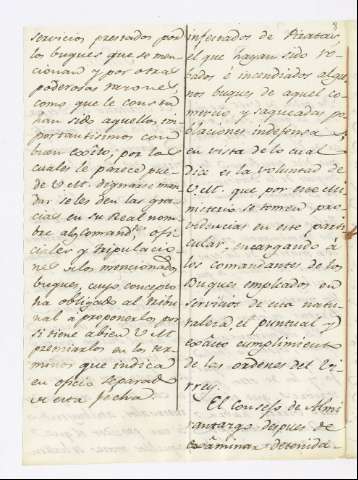 servicios prestados por
los buques que se men-
cionan y por otras
poderosas razones,
como que le consta
han sido aquellos im-
portantisimos con
buen exito; por lo
cuales le parece pue-
de V.M. dignarse man-
dar se les den las gra-
cias en su Real nom-
bre al Comandte. ofi-
ciales y tripulacio-
nes de los mencionados
buques, cuyo concepto
ha obligado al tribu-
nal a proponerlos por
si tiene a bien V.M.
premiarlos en los ter-
minos que indica
en oficio separado
de esta fecha.
8
infestados de Piratas,
el que hayan sido ro-
bados è incendiados algu-
nos buques de aquel co-
mercio y saqueadas po-
blaciones indefensas
en vista de lo cual
dice es la voluntad de
V.M. que por este Mi-
nisterio se tomen pro-
videncias en este parti-
cular, encargando à
los comandantes de los
Buques empleados en
servicios de esta natu-
raleza, el puntual y
exacto cumplimiento
de las ordenes del Vi-
rrey.
El Consejo de Almi-
rantazgo despues de
examinar detenida-